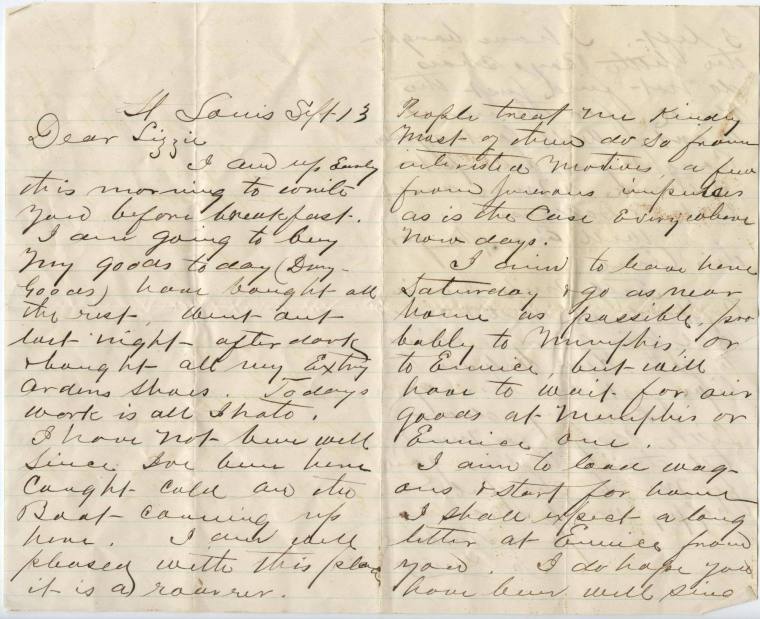 St Louis Sept 13
Dear Lizzie
I am up Early
this morning to write
you before breakfast.
I am going to buy
My goods to day (Dry-
Goods) have bought all
the rest, went out
last night after dark
& bought all my Extry
orders shoes. Todays
work is all I hate.
I have not been well
Since I've been here
Caught cold on the
Boat coming up
here. I am well
pleased with this place
it is a roarer.
People treat me Kindly
Most of them do so from
interested Motives, a few
from generous impulses
as is the Case Everywhere
Now days.
I aim to leave here
Saturday & go as near
home as possible, pro
bably to Memphis, or
to Eunice, but will
have to wait for our
goods at Memphis or
Eunice one.
I aim to load wag-
ons & start for home
I shall expect a long
letter at Eunice from
you. I do hope you
have been well since